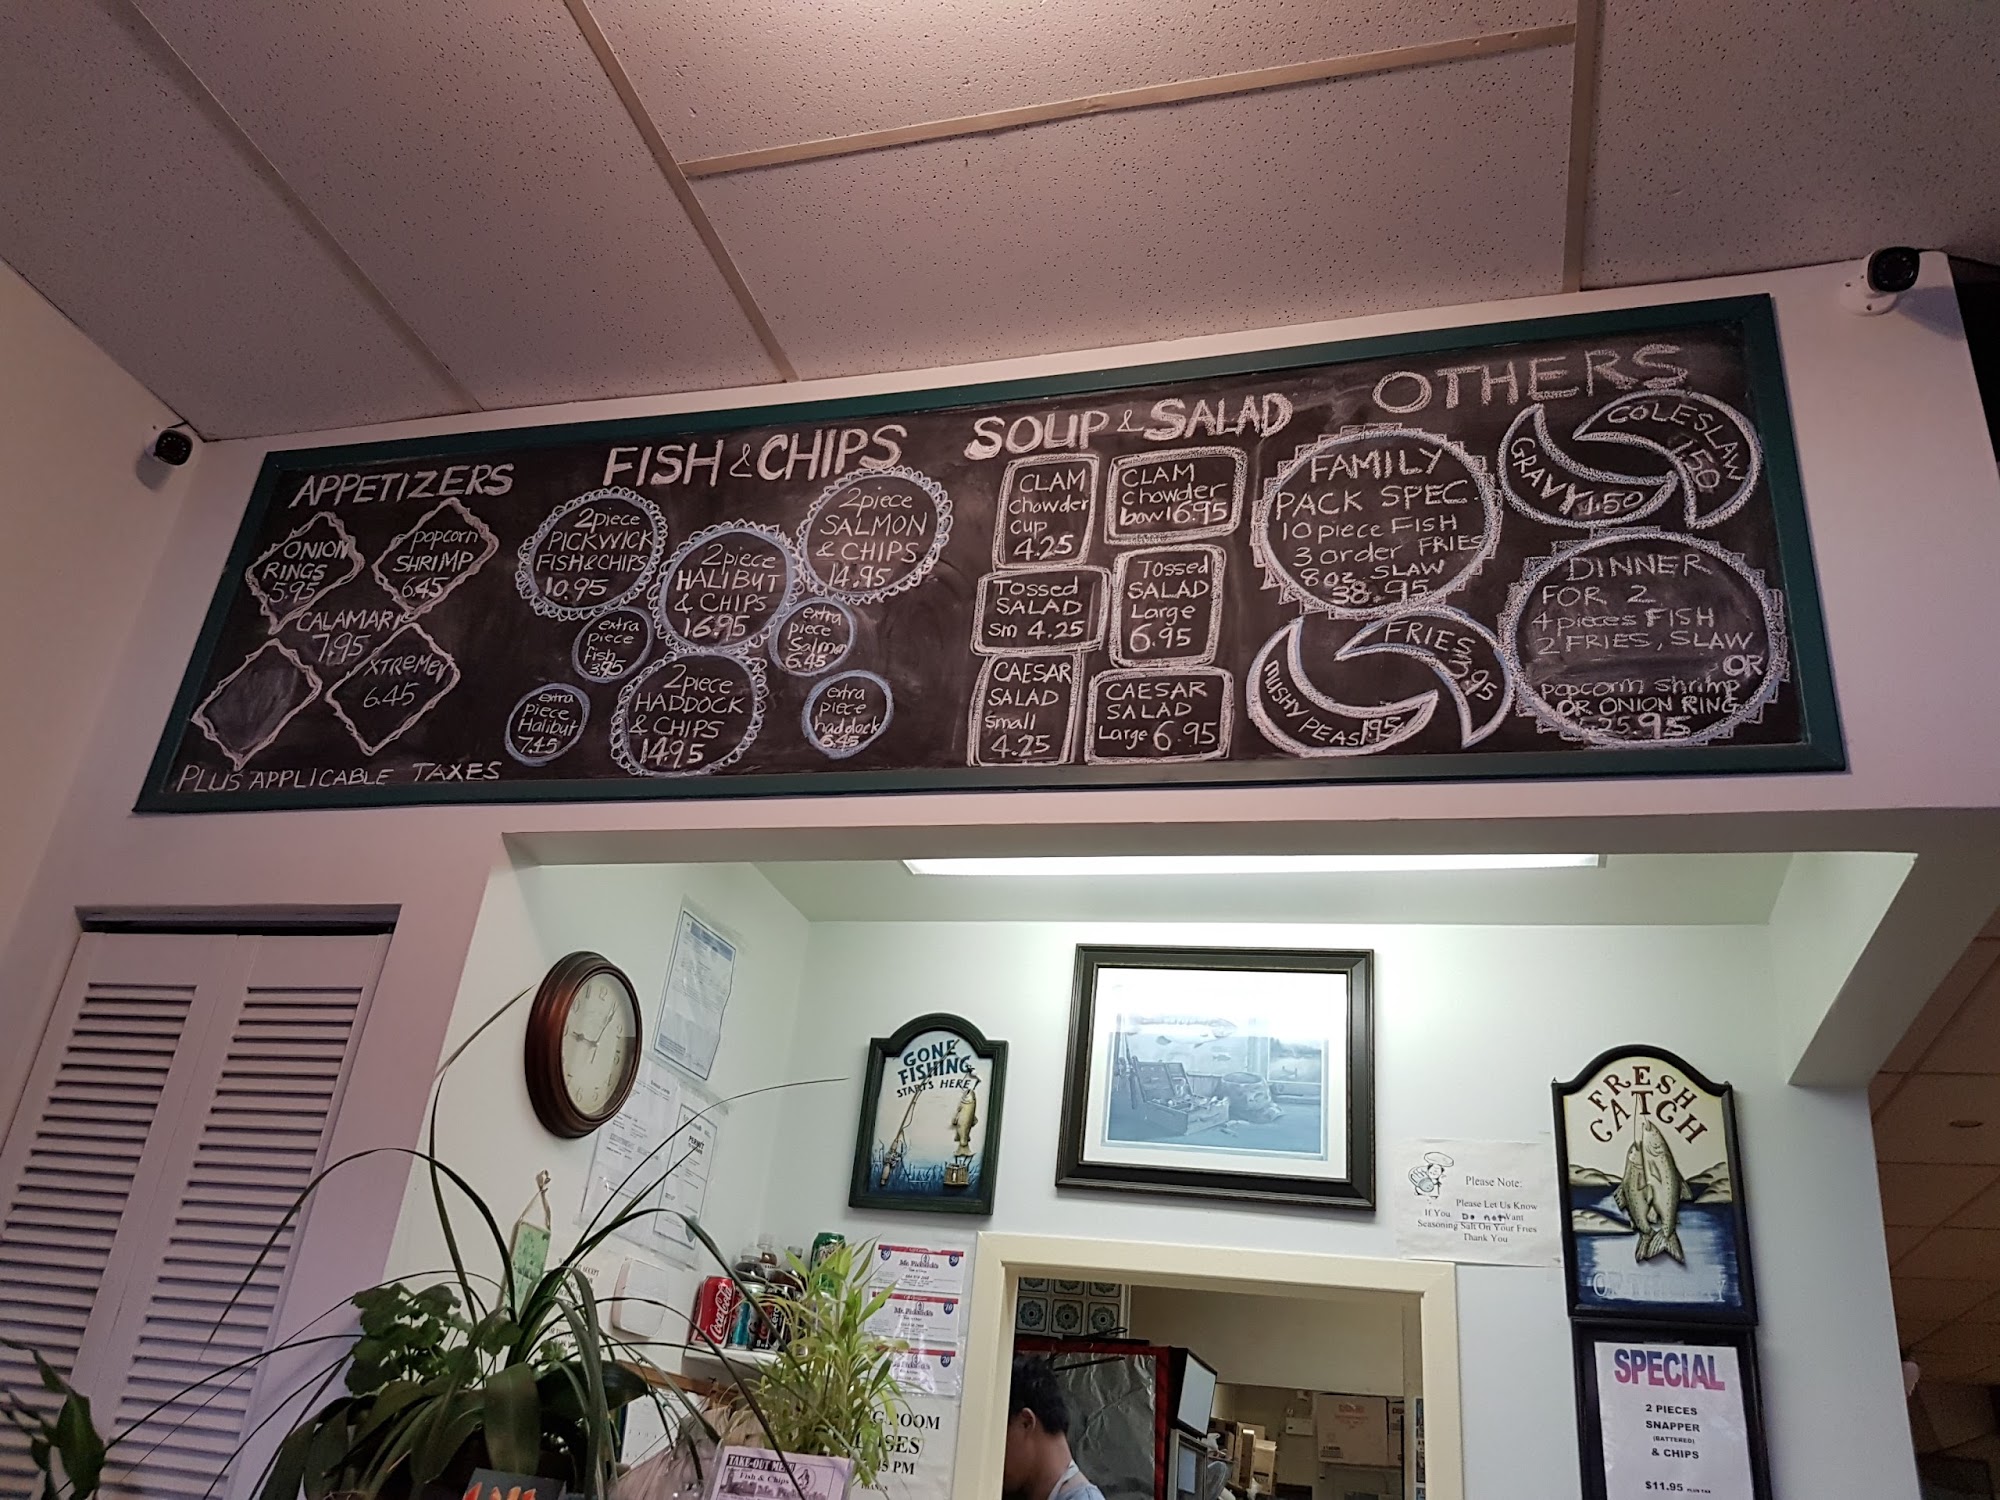 APPETIZERS
ONION
RINGS
5.95
popcorn
SHRIMP
6.45
CALAMARI
7.95
XTREME
6.45
PLUS APPLICABLE TAXES
FISH & CHIPS
2piece
PICKWICK
FISH & CHIPS
10.95
2piece
HALIBUT
& CHIPS
16.95
2piece
SALMON
& CHIPS
14.95
extra
piece
fish
3.95
extra
piece
Salmon
6.45
extra
piece
Halibut
7.45
2piece
HADDOCK
& CHIPS
14.95
extra
piece
haddock
6.45
SOUP & SALAD
CLAM
chowder
cup
4.25
CLAM
chowder
bowl 6.95
Tossed
SALAD
sm 4.25
Tossed
SALAD
Large
6.95
CAESAR
SALAD
small
4.25
CAESAR
SALAD
Large 6.95
OTHERS
FAMILY
PACK SPEC.
10 piece FISH
3 order FRIES
8 oz SLAW
38.95
GRAVY 1.50
COLESLAW
1.50
MUSHY PEAS 1.95
FRIES
3.95
DINNER
FOR 2
4 pieces FISH
2 FRIES, SLAW
OR
popcorn shrimp
OR ONION RING
25.95
GONE
FISHING
STARTS HERE
Please Note:
Please Let Us Know
If You Do not Want
Seasoning Salt On Your Fries
Thank You
FRESH
CATCH
SPECIAL
2 PIECES
SNAPPER
(BATTERED)
& CHIPS
$11.95 PLUS TAX
PERMIT
Coca-Cola
50
Mr. Pickwick's
10
Mr. Pickwick's
20
ROOM
PM
TAKE-OUT MENU
Fish & Chips